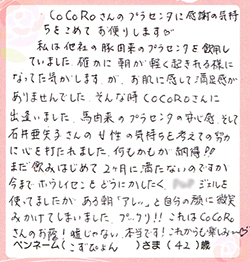 CoCoRoさんのプラセンタに感謝の気持
ちをこめてお便りします♡
私は他社の豚由来のプラセンタを飲用し
ていました。確かに朝が軽く起きれる様に
なってた気がしますが、お肌に感して満足感が
ありませんでした。そんな時CoCoRoさんに
出逢いました。馬由来のプラセンタの安心感、そして
石井亜矢子さんの女性の気持ちを考えての努力
に心を打たれました。何もかもが納得!!
まだ飲みはじめて2ヶ月に満たないのですが
今までホウレイセンをどうにかしたく、ジェルを
使ってましたが ある朝「アレッ」と自分の顔に微笑
みかけてしまいました。ビックリ!! これはCoCoRo
さんのお蔭!嘘じゃない。本当です!これからも楽しみ♡
ペンネーム(こずぴょん)さま(42)歳